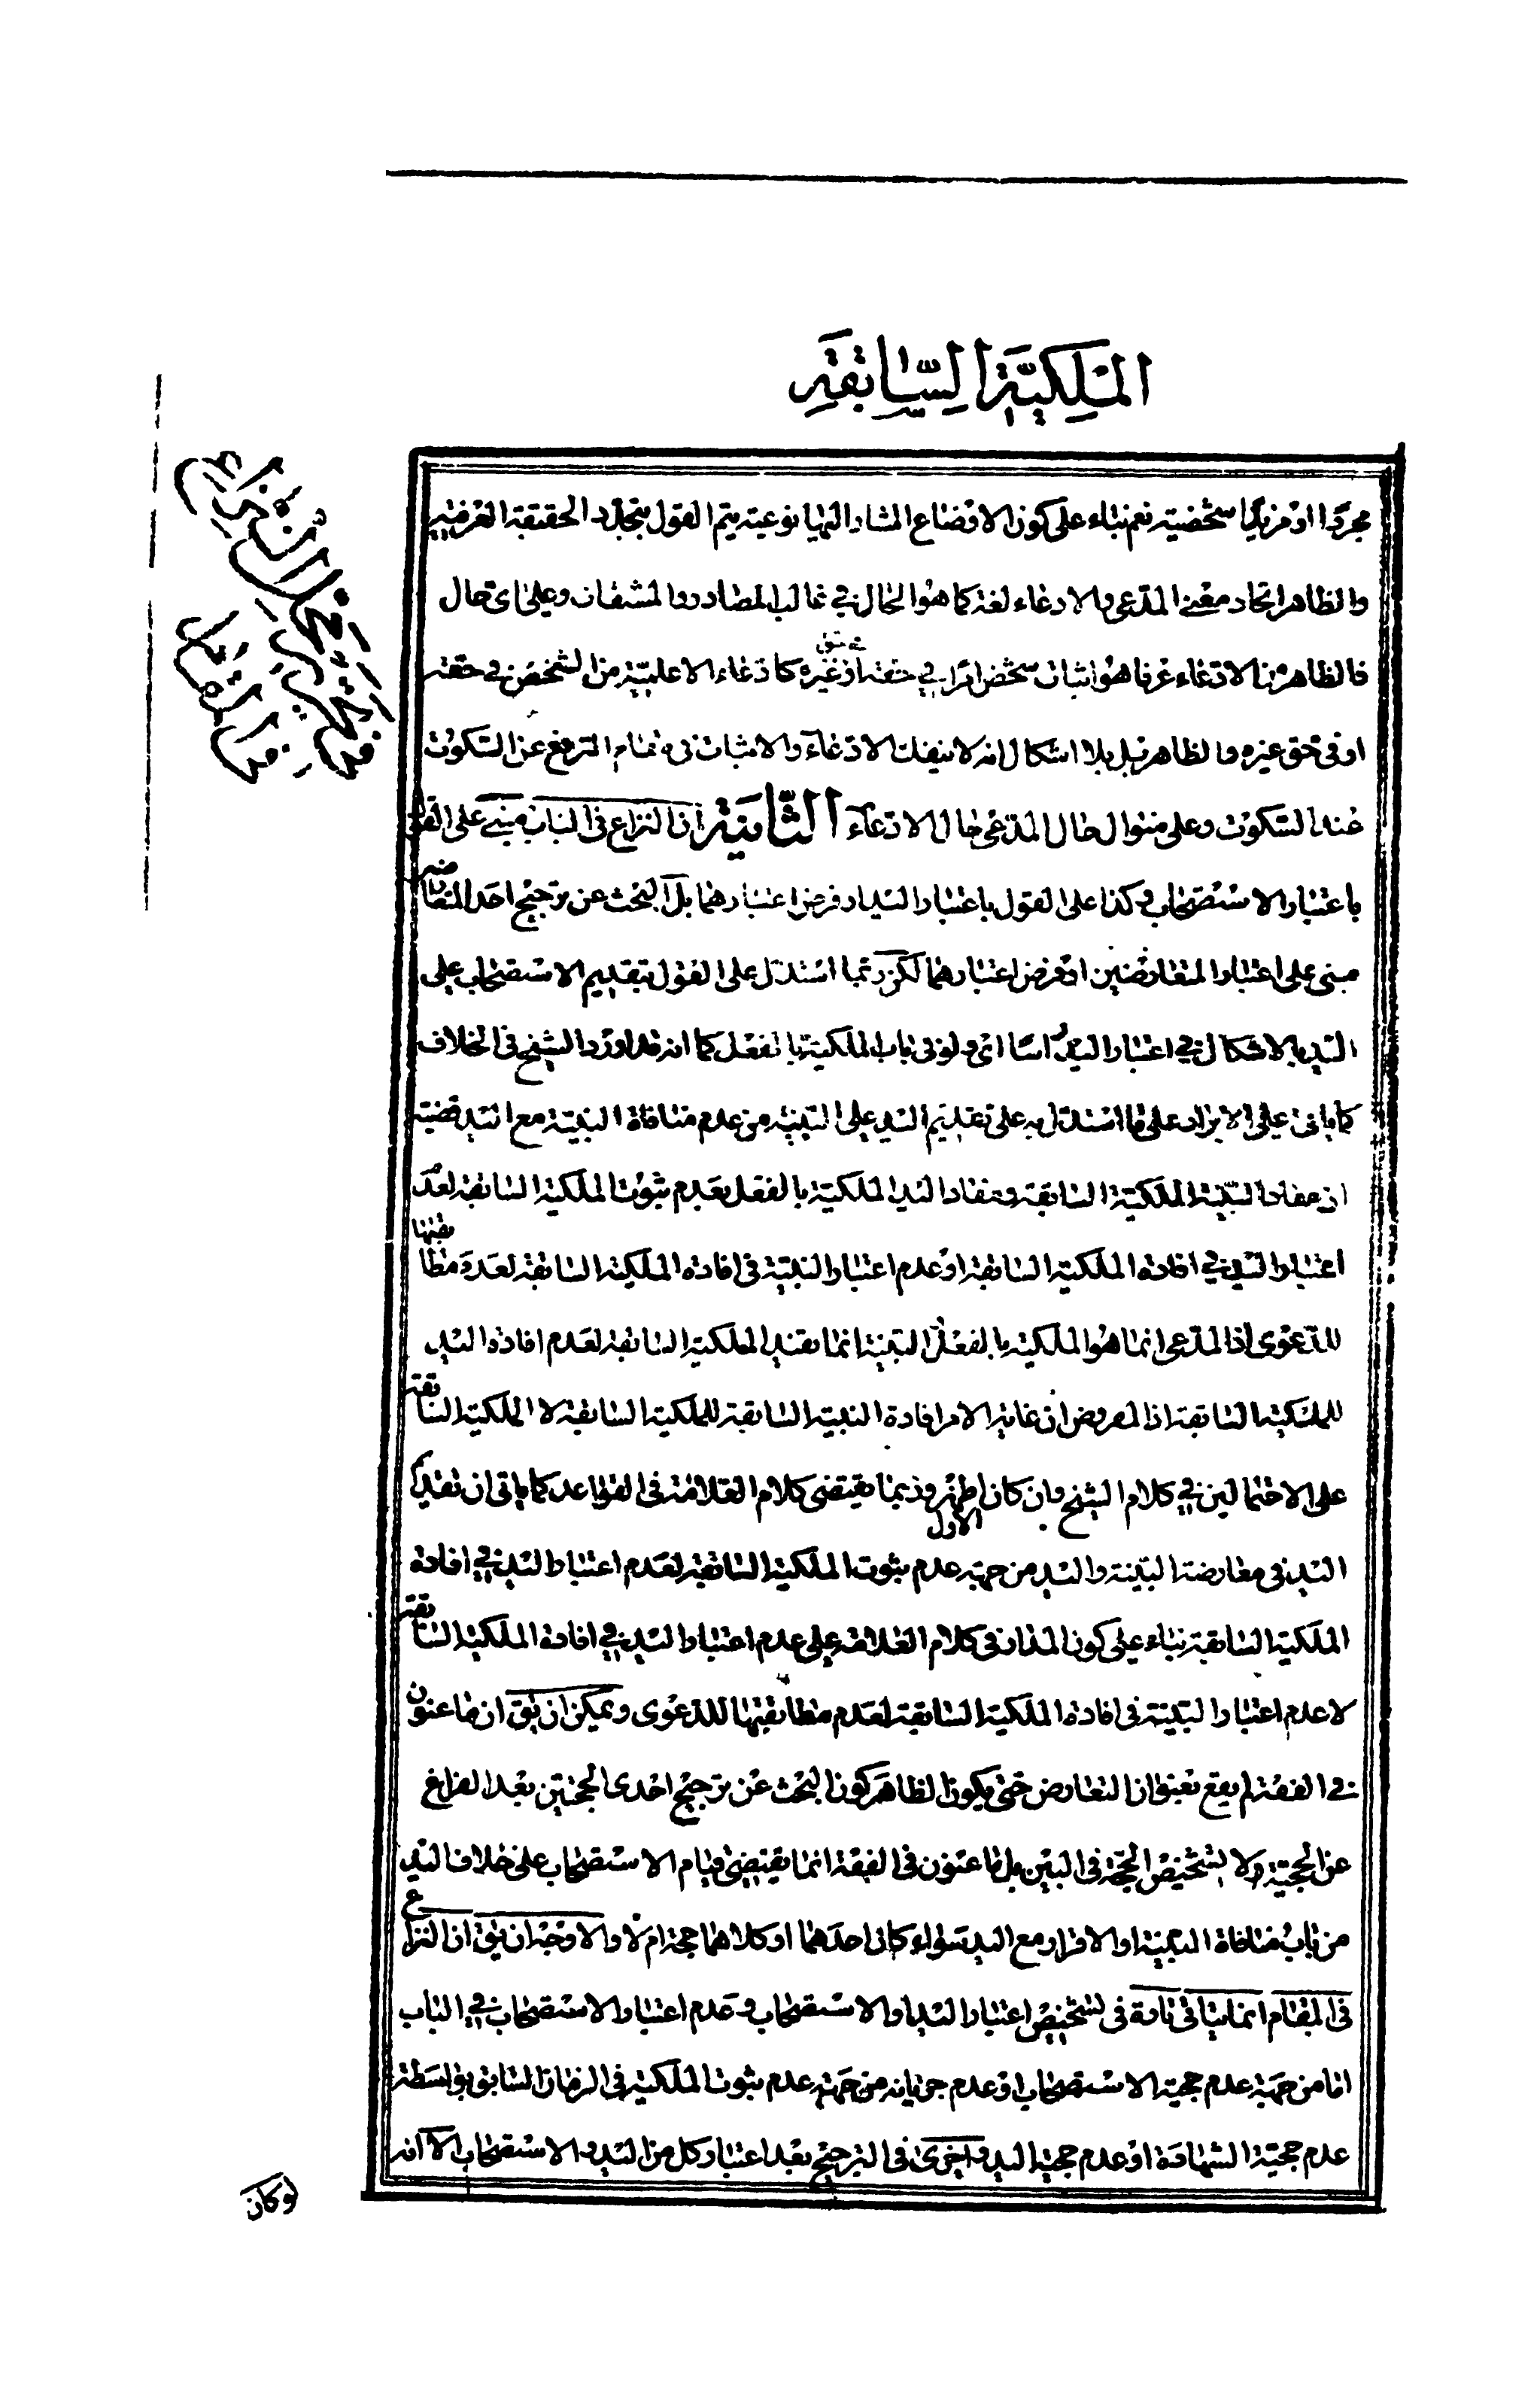 الملكيّة السّابقة
مجرّدا او مزيدا شخصية نعم بناء على كون الاوضاع المشار اليها نوعية يتم القول بتجدد الحقيقة العرفية
والظاهر اتحاد معنى المدعى والادعاء لغة كما هو الحال في غالب المصادر والمشتقات وعلى اى حال
فالظاهر ان الادعاء عرفا هو اثبات شخص امرا في حقه او في حق غيره كادعاء الاعلمية من الشخص في حقه
او في حق غيره والظاهر بل بلا اشكال انه لا ينفك الادعاء والاثبات في مقام الترفع عن السكوت
عند السكوت وعلى منوال حال المدعى حال الادعاء الثّانية ان النزاع في الباب مبنى على القول
باعتبار الاستصحاب وكذا على القول باعتبار اليد او فرض اعتبارهما بل البحث عن ترجيح احد المتعارضين
مبنى على اعتبار المتعارضين او فرض اعتبارهما لكن ربما استدل على القول بتقديم الاستصحاب على
اليد بالاشكال في اعتبار اليد راسا اى ولو في باب الملكية بالفعل كما انه قد اورد الشيخ في الخلاف
كما ياتى على الايراد على ما استدل به على تقديم اليد على البينة من عدم منافاة البينة مع اليد قضية
ان مفاد البينة الملكية السابقة ومفاد اليد الملكية بالفعل بعدم ثبوت الملكية السابقة لعدم
اعتبار اليد في افادة الملكية السابقة او عدم اعتبار البينة في افادة الملكية السابقة لعدم مطابقتها
للدعوى اذ المدعى انما هو الملكية بالفعل والبينة انما تفيد الملكية السابقة لعدم افادة اليد
للملكية السابقة اذ المفروض ان غاية الامر افادة البينة السابقة للملكية السابقة لا الملكية السابقة
على الاحتمالين في كلام الشيخ وان كان الاول اظهر وربما يقتضى كلام العلامة في القواعد كما ياتى ان تقديم
اليد في معارضة البينة واليد من جهة عدم ثبوت الملكية السابقة لعدم اعتبار اليد في افادة
الملكية السابقة بناء على كون المدار في كلام العلامة على عدم اعتبار اليد في افادة الملكية السابقة
لا عدم اعتبار البينة في افادة الملكية السابقة لعدم مطابقتها للدعوى ويمكن ان يق ان ما عنون
في الفقه لم يقع بعنوان التعارض حتى يكون الظاهر كون البحث عن ترجيح احدى الحجتين بعد الفراغ
عن الحجية ولا لتشخيص الحجة في البين بل ما عنون في الفقه انما يقتضى قيام الاستصحاب على خلاف اليد
من باب منافاة البينة او الاقرار مع اليد سواء كان احدهما او كلاهما حجة ام لا والاوجه ان يق ان النزاع
في المقام انما يتاتى تارة في تشخيص اعتبار اليد او الاستصحاب وعدم اعتبار الاستصحاب في الباب
اما من جهة عدم حجية الاستصحاب او عدم جريانه من جهة عدم ثبوت الملكية في الزمان السابق بواسطة
عدم حجية الشهادة او عدم حجية اليد واخرى في الترجيح بعد اعتبار كل من اليد والاستصحاب الا انه
لو كان